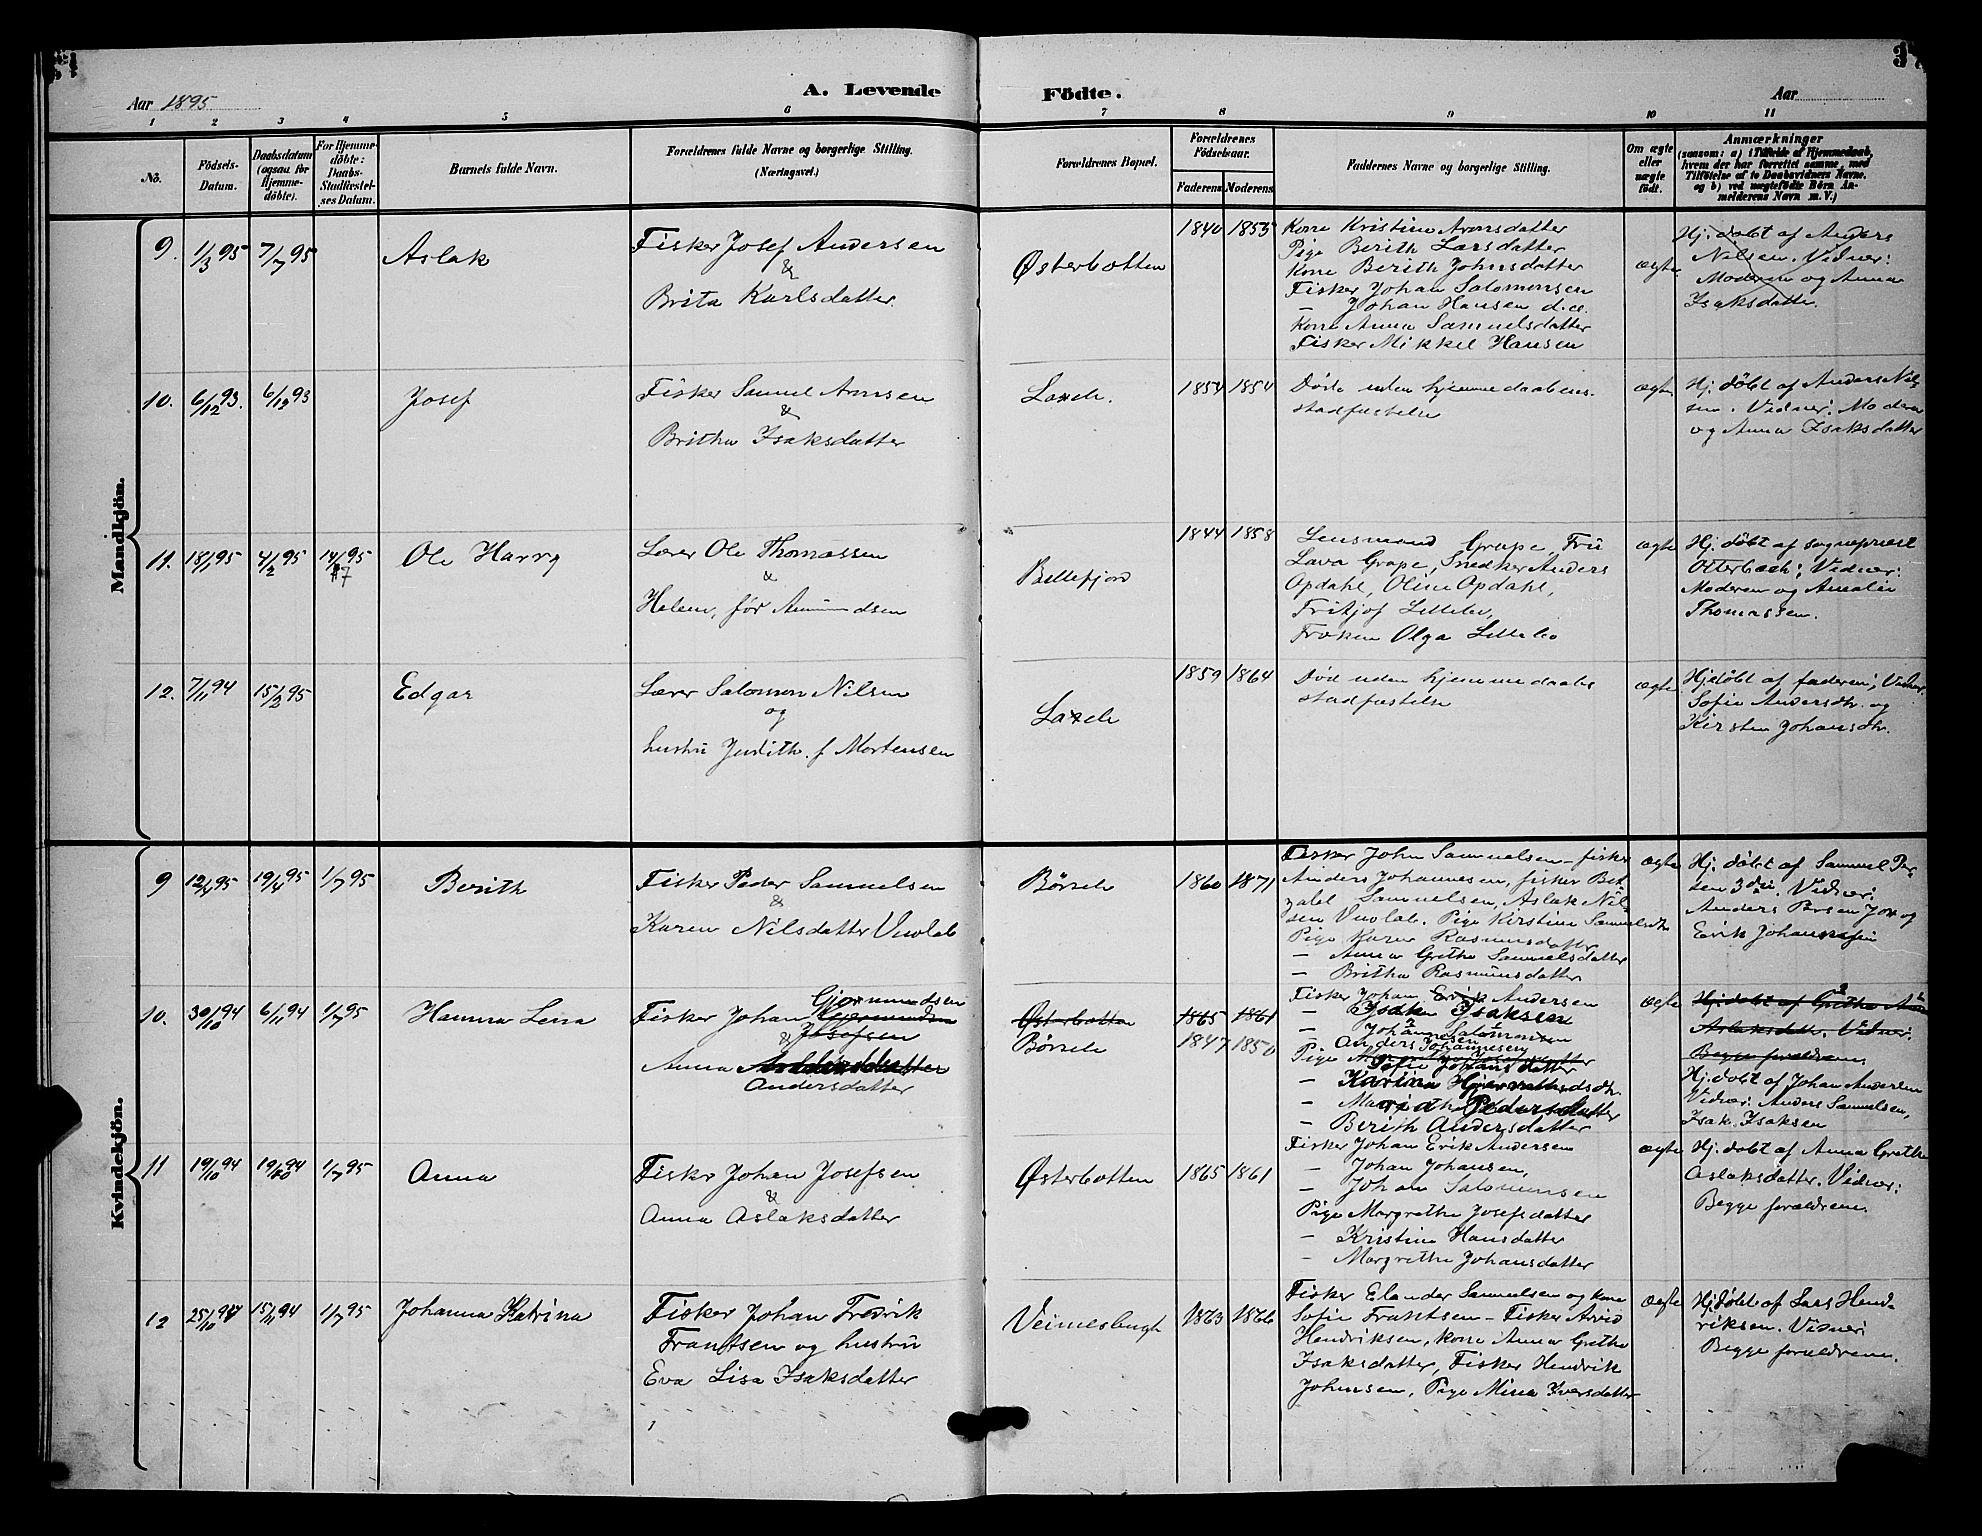 Aar 1895
A. Levende Födte.
Aar
37
1 2 3 4 5 6 7 8 9 10 11
No.
Födsels-
Datum.
Daabsdatum
(ogsaa for
Hjemme-
döbte).
For Hjemme-
döbte:
Daabs-
Stadfæstel-
ses Datum.
Barnets fulde Navn.
Forældrenes fulde Navne og borgerlige Stilling.
(Næringsvei.)
Forældrenes Bopæl.
Forældrenes
Födselsaar.
Faderens Moderens
Faddernes Navne og borgerlige Stilling.
Om ægte
eller
uægte
födt.
Anmærkninger
(saasom: a) i Tilfælde af Hjemmedaab,
hvem der har forrettet samme, med
Tilföielse af to Daabsvidners Navne,
og b) ved uægtefödte Börn An-
melderens Navn m. V.)
Mandkjön.
9. 1/3 95 7/7 95 Aslak
Fisker Josef Andersen
&
Brita Karlsdatter.
Østerbotten
1840 1853
Kone Kristine Aronsdatter
Pige Berith Larsdatter
Kone Berith Johnsdatter
Fisker Johan Salomonsen
— Johan Hansen
Kone Anna Samuelsdatter
Fisker Mikkel Hansen
ægte
Hj. døbt af Anders
Nilsen. Vidner:
Moderen og Anna
Isaksdatter.
10. 6/12 93. 6/12 93 Josef
Fisker Samuel Aronsen
&
Britha Isaksdatter
Laxelv.
1854 1854
Døde uden hjemmedaabens
stadfæstelse
ægte
Hj. døbt af Anders Nil-
sen. Vidner: Moderen
og Anna Isaksdatter
11. 18/1 95 4/2 95 14/7 95 Ole Harry
Lærer Ole Thomassen
&
Helene, før Amundsen
Billefjord
1844 1858
Lensmand Grape, Fru
Lava Grape, Snedker Anders
Opdahl, Oline Opdahl,
Fritjof Lillebo,
Frøken Olga Lillebo
ægte
Hj. døbt af sogneprest
Otterbech; Vidner:
Moderen og Amalie
Thomassen.
12. 7/11 94 15/2 95 Edgar
Lærer Salomon Nilsen
og
hustru Judith f Mortensen
Laxelv
1859 1864
Død uden hjemmedaabs
stadfæstelse
ægte
Hj. døbt af faderen; Vidner
Sofie Andersdtr. og
Kirsten Johansdtr.
Kvindekjön.
9 12/4 95 19/4 95 1/7 95 Berith
Fisker Peder Samuelsen
&
Karen Nilsdatter Vuolab
Børselv
1860 1871
Fisker John Samuelsen – fisker
Anders Johannesen, fisker
Samuelsen, Aslak Nil-
sen Vuolab. Pige Kirstine Samuelsdtr
Pige Karen Rasmusdatter
— Anna Grethe Samuelsdatter
— Britha Rasmusdatter
ægte
Hj. døbt af Samuel Per-
sen Vidner:
Anders Persen og
Erik
10. 30/10 94 6/11 94 1/7 95 Hanna Lena
Gjermundsen
Fisker Johan
& Josefsen
Anna
Andersdatter
Østerbotten
Børselv
1865 1861
1847 1850
Fisker Johan Erik Andersen
— Isak Isaksen
Johan Salomonsen
Anders Johannesen
Pige
Sofie Johansdatter
— Karina
— Pedersdatter
— Berith Andersdatter
ægte
Hj. døbt af Grethe
Aslaksdatter, Vidner:
Begge forældrene
Hj. døbt af Johan Andersen
Vidner: Anders Samuelsen,
Isak Isaksen
11 19/10 94 19/10 94 1/7 95 Anna
Fisker Johan Josefsen
&
Anna Aslaksdatter
Østerbotten
1865 1861
Fisker Johan Erik Andersen
— Johan Johansen,
— Johan Salomonsen
Pige Margrethe Josefsdatter
— Kristine Hansdatter
— Margrethe Johansdatter
ægte
Hj. døbt af Anna Grethe
Aslaksdatter. Vidner:
Begge forældrene.
12 25/10 94 15/11 94 1/7 95 Johanna Katrina
Fisker Johan Fredrik
Frantsen og hustru
Eva Lisa Isaksdatter
Veinesbugt
1863 1866
Fisker Elander Samuelsen og kone
Sofie Frantsen – Fisker Arvid
Hendriksen, kone Anna Grethe
Isaksdatter, Fisker Hendrik
Johnsen, Pige Mina Iversdatter
ægte
Hj. døbt af Lars Hend-
riksen. Vidner:
Begge forældrene.